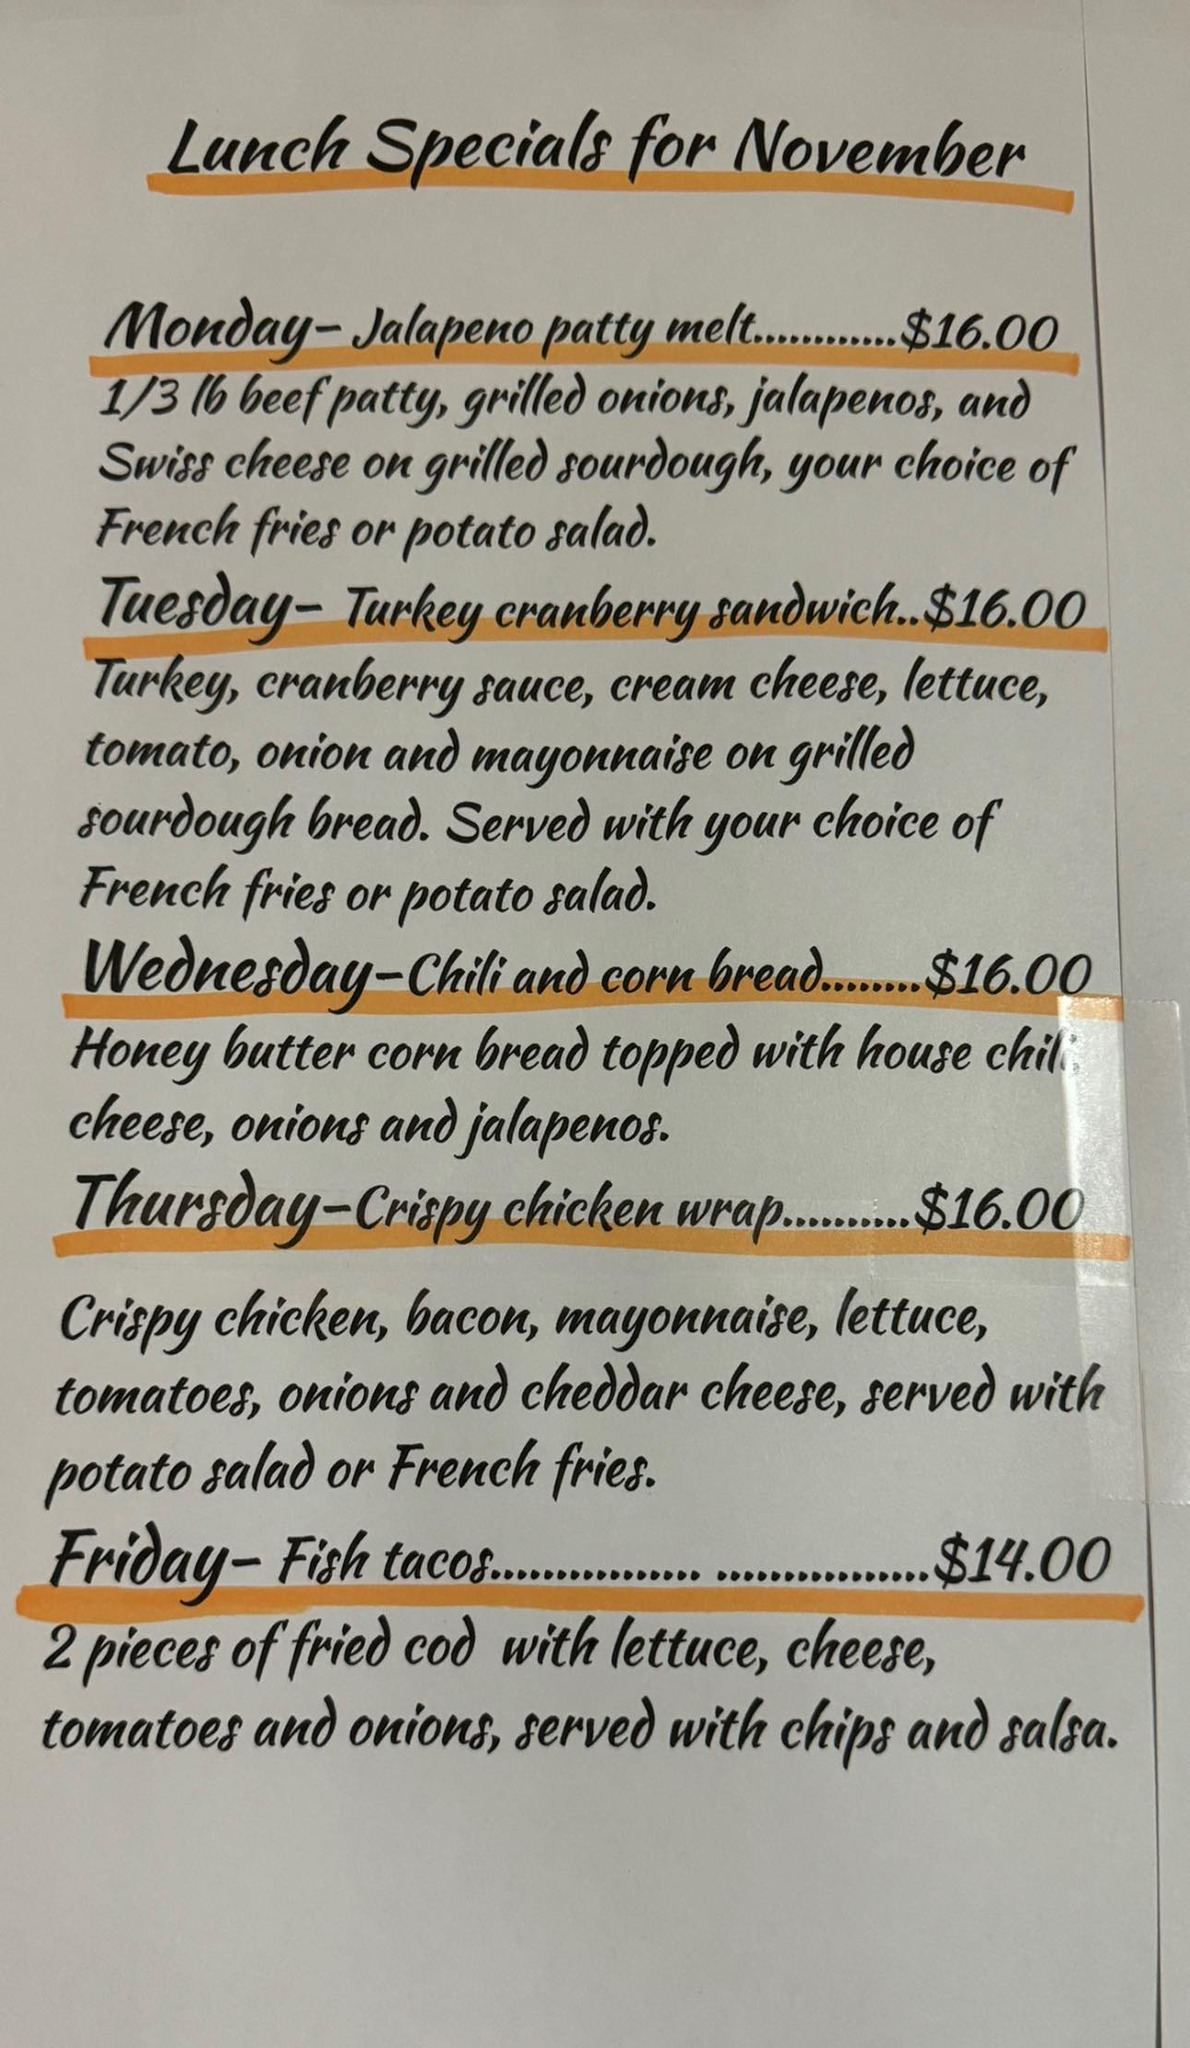 Lunch Specials for November
Monday- Jalapeno patty melt.............$16.00
1/3 lb beef patty, grilled onions, jalapenos, and
Swiss cheese on grilled sourdough, your choice of
French fries or potato salad.
Tuesday- Turkey cranberry sandwich..$16.00
Turkey, cranberry sauce, cream cheese, lettuce,
tomato, onion and mayonnaise on grilled
sourdough bread. Served with your choice of
French fries or potato salad.
Wednesday-Chili and corn bread........$16.00
Honey butter corn bread topped with house chili,
cheese, onions and jalapenos.
Thursday-Crispy chicken wrap..........$16.00
Crispy chicken, bacon, mayonnaise, lettuce,
tomatoes, onions and cheddar cheese, served with
potato salad or French fries.
Friday- Fish tacos................ .................$14.00
2 pieces of fried cod with lettuce, cheese,
tomatoes and onions, served with chips and salsa.